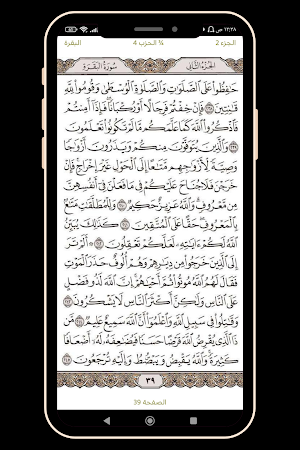 ١٢:٣٨ ص
الجزء 2
¾ الحزب 4
البقرة
الجزء الثاني
سورة البقرة
حَٰفِظُوا۟ عَلَى ٱلصَّلَوَٰتِ وَٱلصَّلَوٰةِ ٱلْوُسْطَىٰ وَقُومُوا۟ لِلَّهِ
قَٰنِتِينَ ٢٣٨ فَإِنْ خِفْتُمْ فَرِجَالًا أَوْ رُكْبَانًا فَإِذَآ أَمِنتُمْ
فَٱذْكُرُوا۟ ٱللَّهَ كَمَا عَلَّمَكُم مَّا لَمْ تَكُونُوا۟ تَعْلَمُونَ
٢٣٩ وَٱلَّذِينَ يُتَوَفَّوْنَ مِنكُمْ وَيَذَرُونَ أَزْوَٰجًا
وَصِيَّةً لِّأَزْوَٰجِهِم مَّتَٰعًا إِلَى ٱلْحَوْلِ غَيْرَ إِخْرَاجٍ فَإِنْ
خَرَجْنَ فَلَا جُنَاحَ عَلَيْكُمْ فِى مَا فَعَلْنَ فِىٓ أَنفُسِهِنَّ
مِن مَّعْرُوفٍ وَٱللَّهُ عَزِيزٌ حَكِيمٌ ٢٤٠ وَلِلْمُطَلَّقَٰتِ مَتَٰعٌۢ
بِٱلْمَعْرُوفِ حَقًّا عَلَى ٱلْمُتَّقِينَ ٢٤١ كَذَٰلِكَ يُبَيِّنُ
ٱللَّهُ لَكُمْ ءَايَٰتِهِۦ لَعَلَّكُمْ تَعْقِلُونَ ٢٤٢ أَلَمْ تَرَ
إِلَى ٱلَّذِينَ خَرَجُوا۟ مِن دِيَٰرِهِمْ وَهُمْ أُلُوفٌ حَذَرَ ٱلْمَوْتِ
فَقَالَ لَهُمُ ٱللَّهُ مُوتُوا۟ ثُمَّ أَحْيَٰهُمْ إِنَّ ٱللَّهَ لَذُو فَضْلٍ
عَلَى ٱلنَّاسِ وَلَٰكِنَّ أَكْثَرَ ٱلنَّاسِ لَا يَشْكُرُونَ ٢٤٣
وَقَٰتِلُوا۟ فِى سَبِيلِ ٱللَّهِ وَٱعْلَمُوٓا۟ أَنَّ ٱللَّهَ سَمِيعٌ عَلِيمٌ ٢٤٤ مَّن
ذَا ٱلَّذِى يُقْرِضُ ٱللَّهَ قَرْضًا حَسَنًا فَيُضَٰعِفَهُۥ لَهُۥٓ أَضْعَافًا
كَثِيرَةً وَٱللَّهُ يَقْبِضُ وَيَبْصُۜطُ وَإِلَيْهِ تُرْجَعُونَ ٢٤٥
٣٩
الصفحة 39